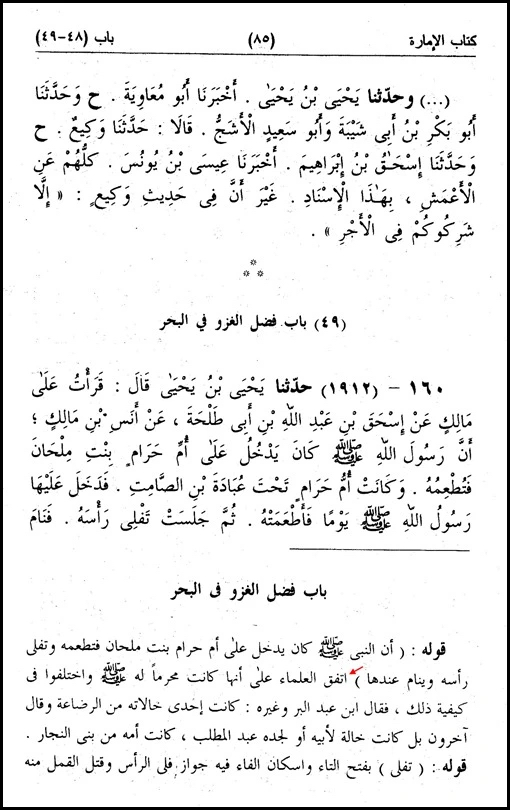 كتاب الإمارة (٨٥) باب (٤٨-٤٩)
(...) وحدّثنا يَحْيَى بْنُ يَحْيَىٰ . أَخْبَرَنَا أَبُو مُعَاوِيَةَ . ح وَحَدَّثَنَا
أَبُو بَكْرِ بْنُ أَبِى شَيْبَةَ وَأَبُو سَعِيدٍ الْأَشَجُّ . قَالَا : حَدَّثَنَا وَكِيعٌ . ح
وَحَدَّثَنَا إِسْحَـٰقُ بْنُ إِبْرَاهِيمَ . أَخْبَرَنَا عِيسَى بْنُ يُونُسَ . كلُّهُمْ عَنِ
الْأَعْمَشِ ، بِهَـٰذَا الْإِسْنَادِ . غَيْرَ أَنَّ فِى حَدِيثِ وَكِيعٍ : « إِلَّا
شَرِكُوكُمْ فِى الْأَجْرِ » .
(٤٩) باب فضل الغزو في البحر
١٦٠ – (١٩١٢) حدّثنا يَحْيَى بْنُ يَحْيَىٰ قَالَ : قَرَأْتُ عَلَىٰ
مَالِكٍ عَنْ إِسْحَقَ بْنِ عَبْدِ اللّٰهِ بْنِ أَبِى طَلْحَةَ ، عَنْ أَنَسِ بْنِ مَالِكٍ ؛
أَنَّ رَسُولَ اللّٰهِ ﷺ كَانَ يَدْخُلُ عَلَىٰ أُمِّ حَرَامٍ بِنْتِ مِلْحَانَ
فَتُطْعِمُهُ . وَكَانَتْ أُمُّ حَرَامٍ تَحْتَ عُبَادَةَ بْنِ الصَّامِتِ . فَدَخَلَ عَلَيْهَا
رَسُولُ اللّٰهِ ﷺ يَوْمًا فَأَطْعَمَتْهُ . ثُمَّ جَلَسَتْ تَفْلِى رَأْسَهُ . فَنَامَ
باب فضل الغزو فى البحر
قوله : ( أن النبى ﷺ كان يدخل على أم حرام بنت ملحان فتطعمه وتفلى
رأسه وينام عندها ) اتفق العلماء على أنها كانت محرماً له ﷺ واختلفوا فى
كيفية ذلك ، فقال ابن عبد البر وغيره : كانت إحدى خالاته من الرضاعة وقال
آخرون بل كانت خالة لأبيه أو لجده عبد المطلب ، كانت أمه من بنى النجار .
قوله : ( تفلى ) بفتح التاء واسكان الفاء فيه جواز فلى الرأس وقتل القمل منه